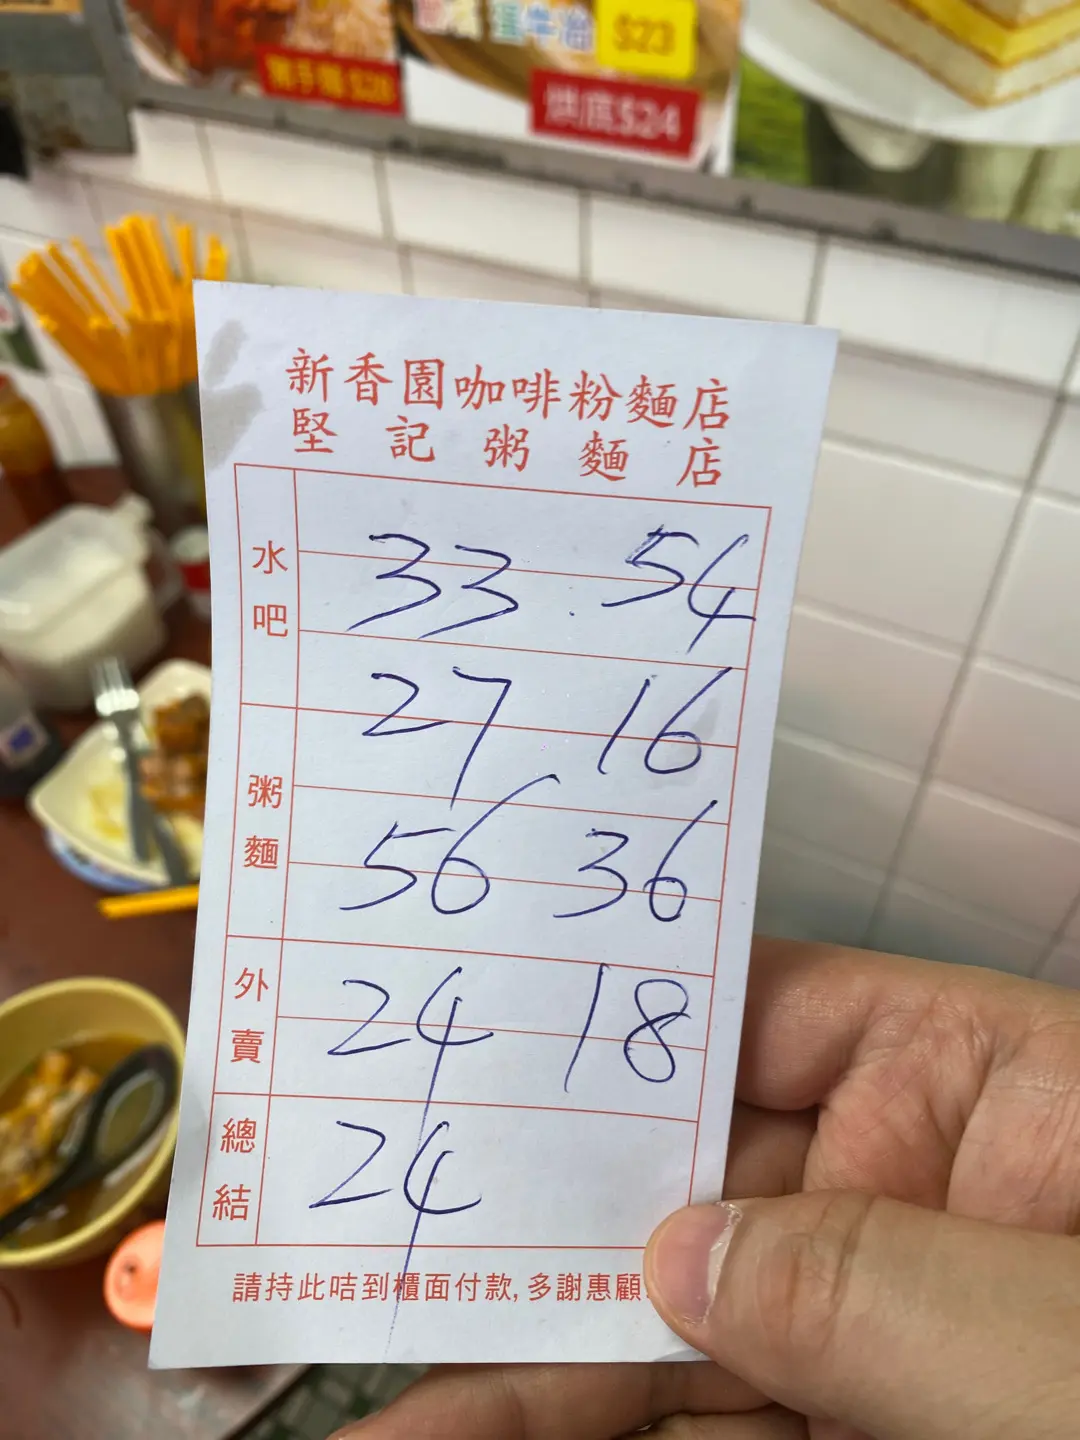 $23
烘底$24
新香園咖啡粉麵店
堅記粥麵店
水吧
33 . 54
27 16
粥麵
56 36
外賣
24 18
總結
24
請持此咭到櫃面付款,多謝惠顧